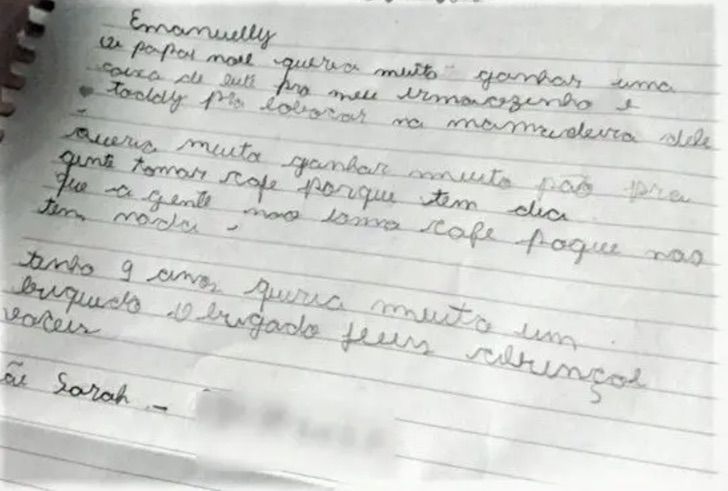 Emanuelly
oi papai noel queria muito ganhar uma
caixa de leite pro meu irmaozinho e
toddy pra colocar na mamadeira dele
queria muito ganhar muito pão pra
gente tomar cafe porque tem dia
que a gente nao toma cafe poque nao
tem nada.
tenho 9 anos queria muito um
briquedo obrigado feus abençoe
voceis
ãe Sarah -